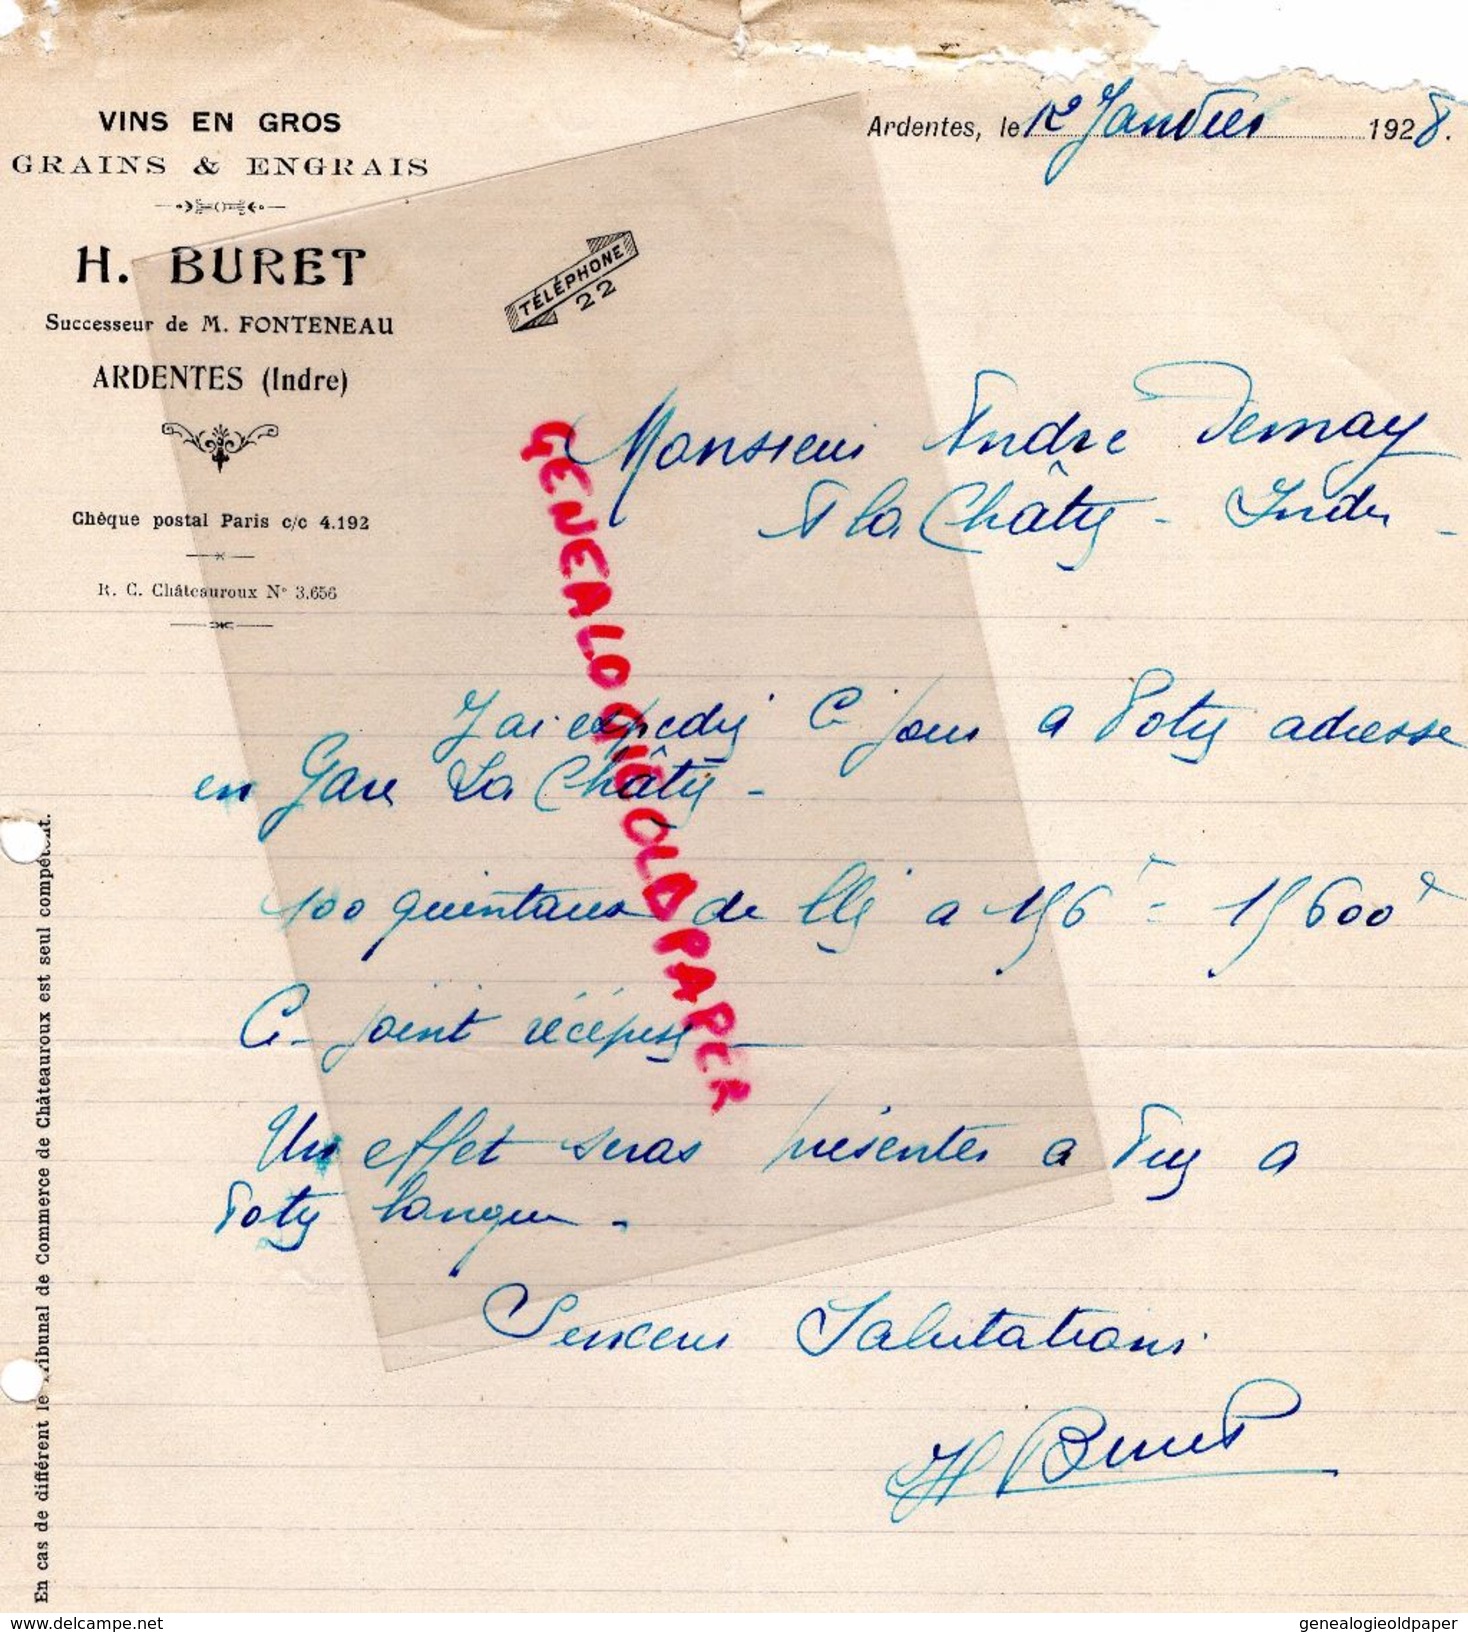 VINS EN GROS
GRAINS & ENGRAIS
H. BURET
Successeur de M. FONTENEAU
ARDENTES (Indre)
Chèque postal Paris c/c 4.192
R. C. Châteauroux N° 3.656
TÉLÉPHONE
22
Ardentes, le 12 Janvier 1928.
Monsieur André
A la Châtre - Indre -
J'ai expedié Ce jour a Votre adresse
en Gare La Châtre -
100 quintaux de Blé a 156 = 15600
Ci-joint récépissé
Un effet seras présenter a Vue a
Votre banque -
Sinceres Salutations
H Buret
En cas de différent le Tribunal de Commerce de Châteauroux est seul compétent.
GENEALOGIE OLD PAPER
www.delcampe.net
genealogieoldpaper